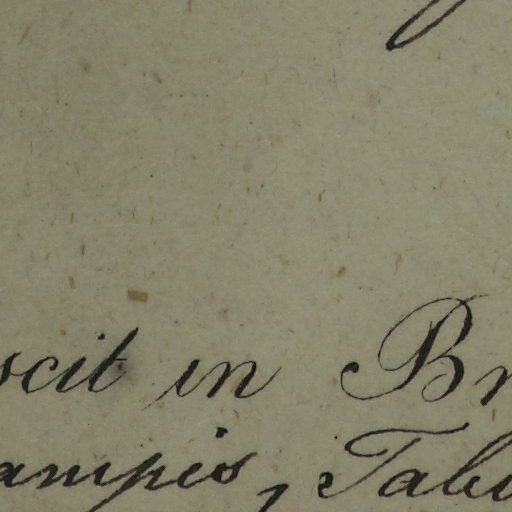 scit in Br
ampis, Tabu